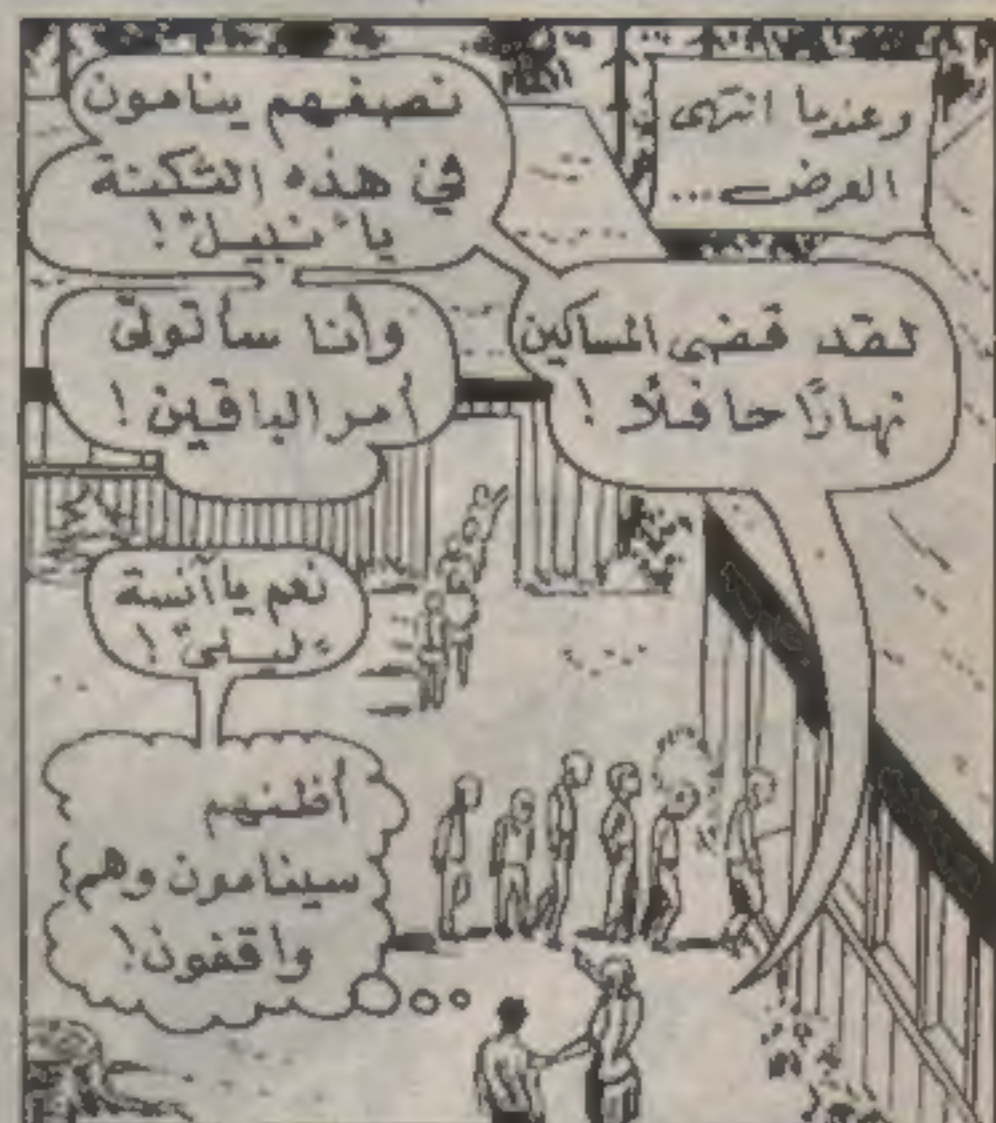 وعندما انتهى
العرض...
لقد قضى المساكين
نهارًا حافلًا !
نصفهم ينامون
في هذه الثكنة
يا "نبيل" !
وأنا سأتولّى
أمر الباقين !
نعم يا آنسة
"ليلى" !
أظنهم
سينامون وهم
واقفون !